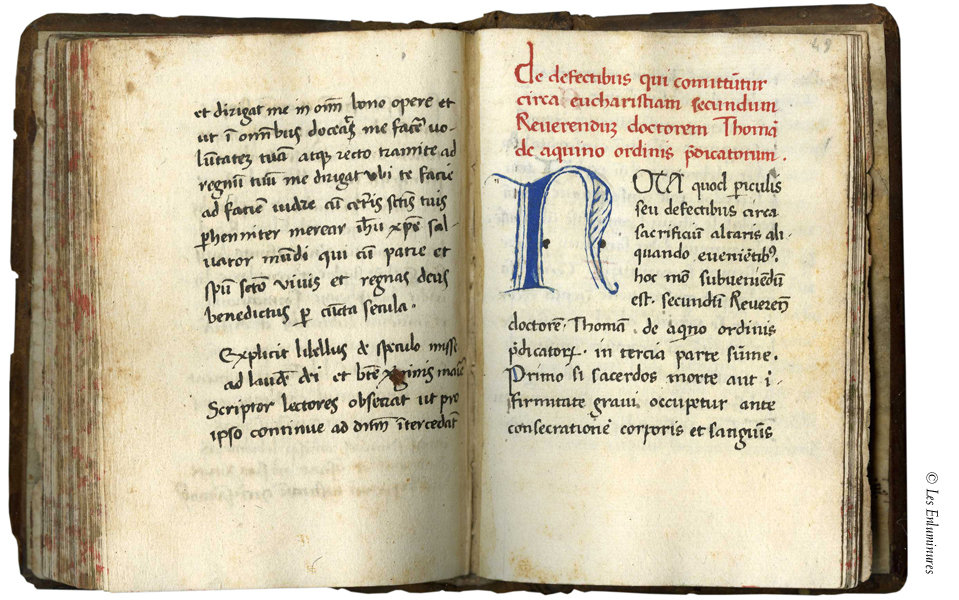 et dirigat me in om̅i bono opere et
ut i̅ omnibus doceas me face̅ vo-
lu̅tatez tua̅ atqz recto tramite ad
regnu̅ tuu̅ me dirigat ubi te facie
ad facie̅ vide̅ cu̅ cete̅is sct̅is tuis
phenniter merear ih̅u xp̅e sal-
vator mu̅di qui cu̅ patre et
sp̅u sct̅o vivis et regnas deus
benedictus p cu̅cta secula.
Explicit libellus de speculo misse
ad laude̅ dei et bt̅e v̅ginis ma̅ie
Scriptor lectores obsecrat ut pro
ipso continue ad dn̅m i̅tercedat̅
49
de defectibus qui comittu̅tur
circa eucharistiam secundum
Reverenduz doctorem Thoma̅
de aquino ordinis p̅dicatorum.
NOTA quod piculis
seu defectibus circa
sacrificiu̅ altaris ali-
quando evenie̅tibꝰ.
hoc mo̅ subvenie̅du̅
est. secundu̅ Revere̅d
doctore̅. Thoma̅ de aq̅no ordinis
p̅dicatoꝝ. in tercia parte su̅me.
Primo si sacerdos morte aut i̅-
firmitate gravi occupetur ante
consecratione̅ corporis et sangui̅s
© Les Enluminures